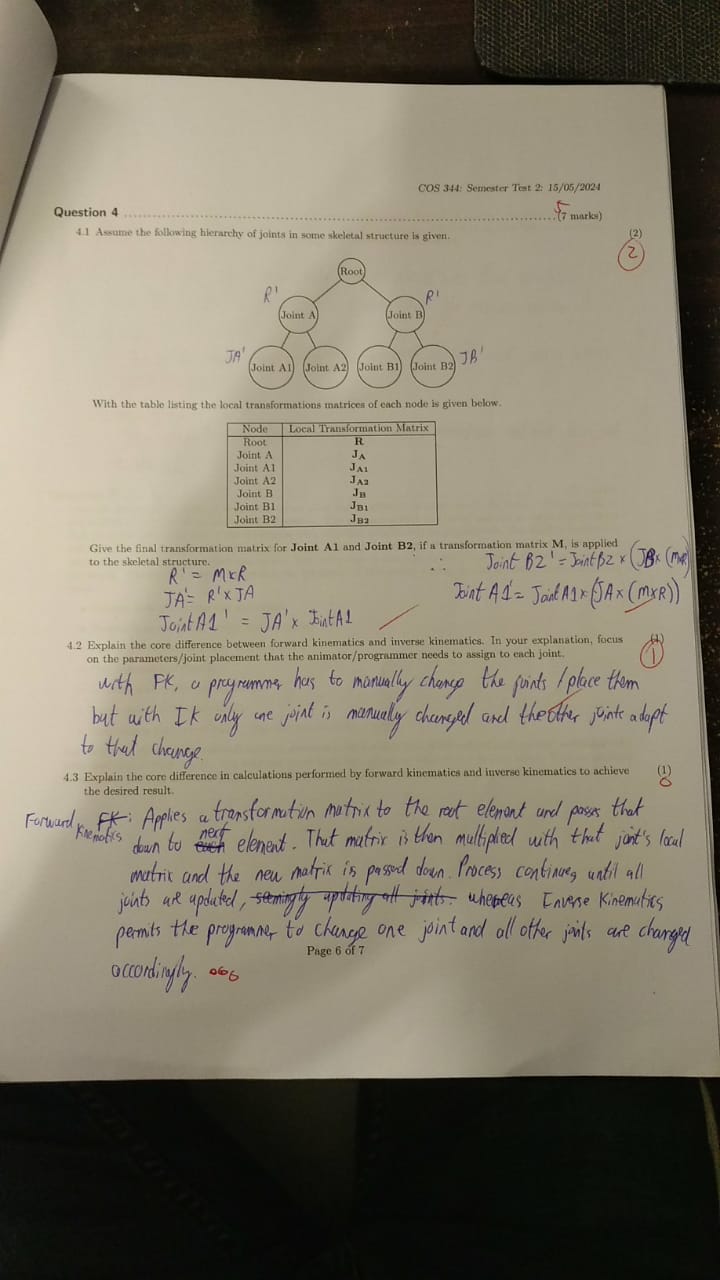 COS 344: Semester Test 2: 15/05/2024
Question 4 (7 marks)
5
4.1 Assume the following hierarchy of joints in some skeletal structure is given. (2)
2
Root
R' R'
Joint A Joint B
JA' Joint A1 Joint A2 Joint B1 Joint B2 JB'
With the table listing the local transformations matrices of each node is given below.
Node Local Transformation Matrix
Root R
Joint A JA
Joint A1 JA1
Joint A2 JA2
Joint B JB
Joint B1 JB1
Joint B2 JB2
Give the final transformation matrix for Joint A1 and Joint B2, if a transformation matrix M, is applied
to the skeletal structure.
∴ Joint B2' = Joint B2 × (JB × (M×R)
R' = M×R
JA' = R' × JA Joint A1' = Joint A1 × (JA × (M×R))
Joint A1' = JA' × Joint A1
4.2 Explain the core difference between forward kinematics and inverse kinematics. In your explanation, focus (1)
on the parameters/joint placement that the animator/programmer needs to assign to each joint. 1
with FK, a programmer has to manually change the joints / place them
but with IK only one joint is manually changed and the other joints adapt
to that change.
4.3 Explain the core difference in calculations performed by forward kinematics and inverse kinematics to achieve (1)
the desired result. 0
Forward Kinematics FK: Applies a transformation matrix to the root element and passes that
down to each next element. That matrix is then multiplied with that joint's local
matrix and the new matrix is passed down. Process continues until all
joints are updated, seemingly updating all joints. whereas Inverse Kinematics
permits the programmer to change one joint and all other joints are changed
Page 6 of 7
accordingly.